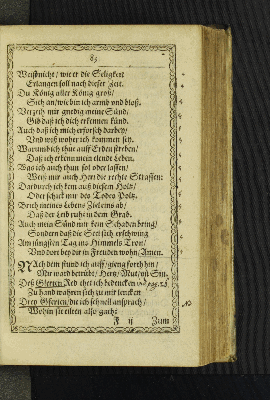 65
Weistnicht / wie er die Seligkeit
Erlangen soll nach dieser Zeit.
Du König aller König groß /
Sich an / wie bin ich arm vnd bloß.
Verzeih mir gnedig meine Sünd /
Gib daß ich dich erkennen künd.
Auch daß ich mich erforsch darbey /
Vnd wiß woher ich kommen sey.
Warumb ich thue auff Erden streben /
Daß ich erkenn mein elendt Leben.
Was ich auch thun sol oder lassen /
Weis mir auch Herr die rechte Strassen:
Dardurch ich kom auß diesem
Oder schickt mir des Todes
Brich meines Lebens Ziel
Daß der Leib ruhe in dem Grab.
Auch mein Sünd mir kein Schaden bring /
Sondern daß die Seel sich erschwing
Am jüngsten Tag ins Himmels Tron /
Vnd dort bey dir in Frewden wohn / Amen.
Nach dem stund ich auff / gieng forth hin /
Mir ward betrübt / Hertz / Mut / vñ Sin.
Deß Red thet ich bedencken
Zu hand wahren sich zu mir lencken
Drey die ich schnell ansprach /
Wohin sie eilten also gach:
F ij
Zum